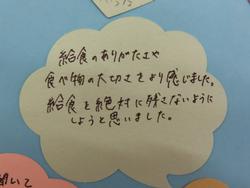 給食のありがたさや
食べ物の大切さをより感じました。
給食を絶対に残さないように
しようと思いました。
聞いて